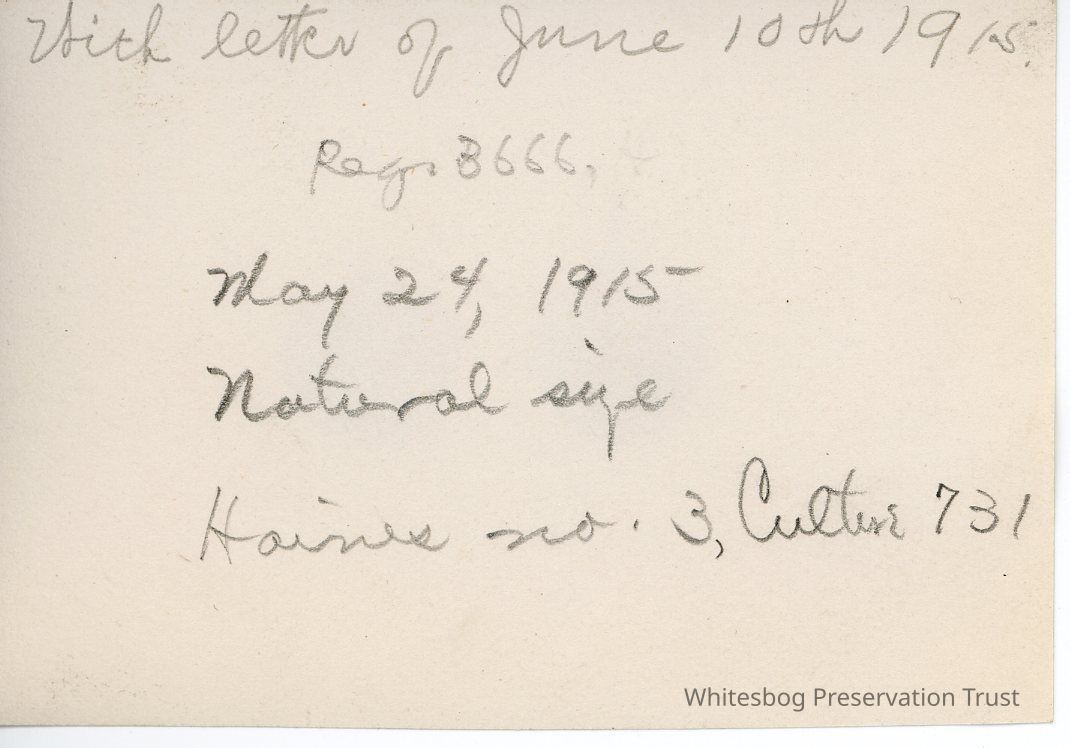 With letter of June 10th 1915.
Reg. B666.
May 24, 1915
Natural size
Haines no. 3, Culture 731
Whitesbog Preservation Trust